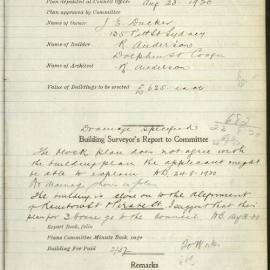 Plan deposited at Council Office Aug 23 1920
Plan approved by Committee
Name of Owner J. E. Ducker
135 Pitt St Sydney
Name of Builder R Anderson
Dolphin St Coogee
Name of Architect R Anderson
Value of Buildings to be erected £ 625
Drainage specified
Building Surveyor's Report to Committee
The block plan does not agree with
the building plan the applicant might
be able to explain 24-8-1920
The building is close on to the alignment
of I suggest that this
plan for 3 houses go to the Council.
Report Book, folio
Plans Committee Minute Book, page
Building Fee Paid
Remarks